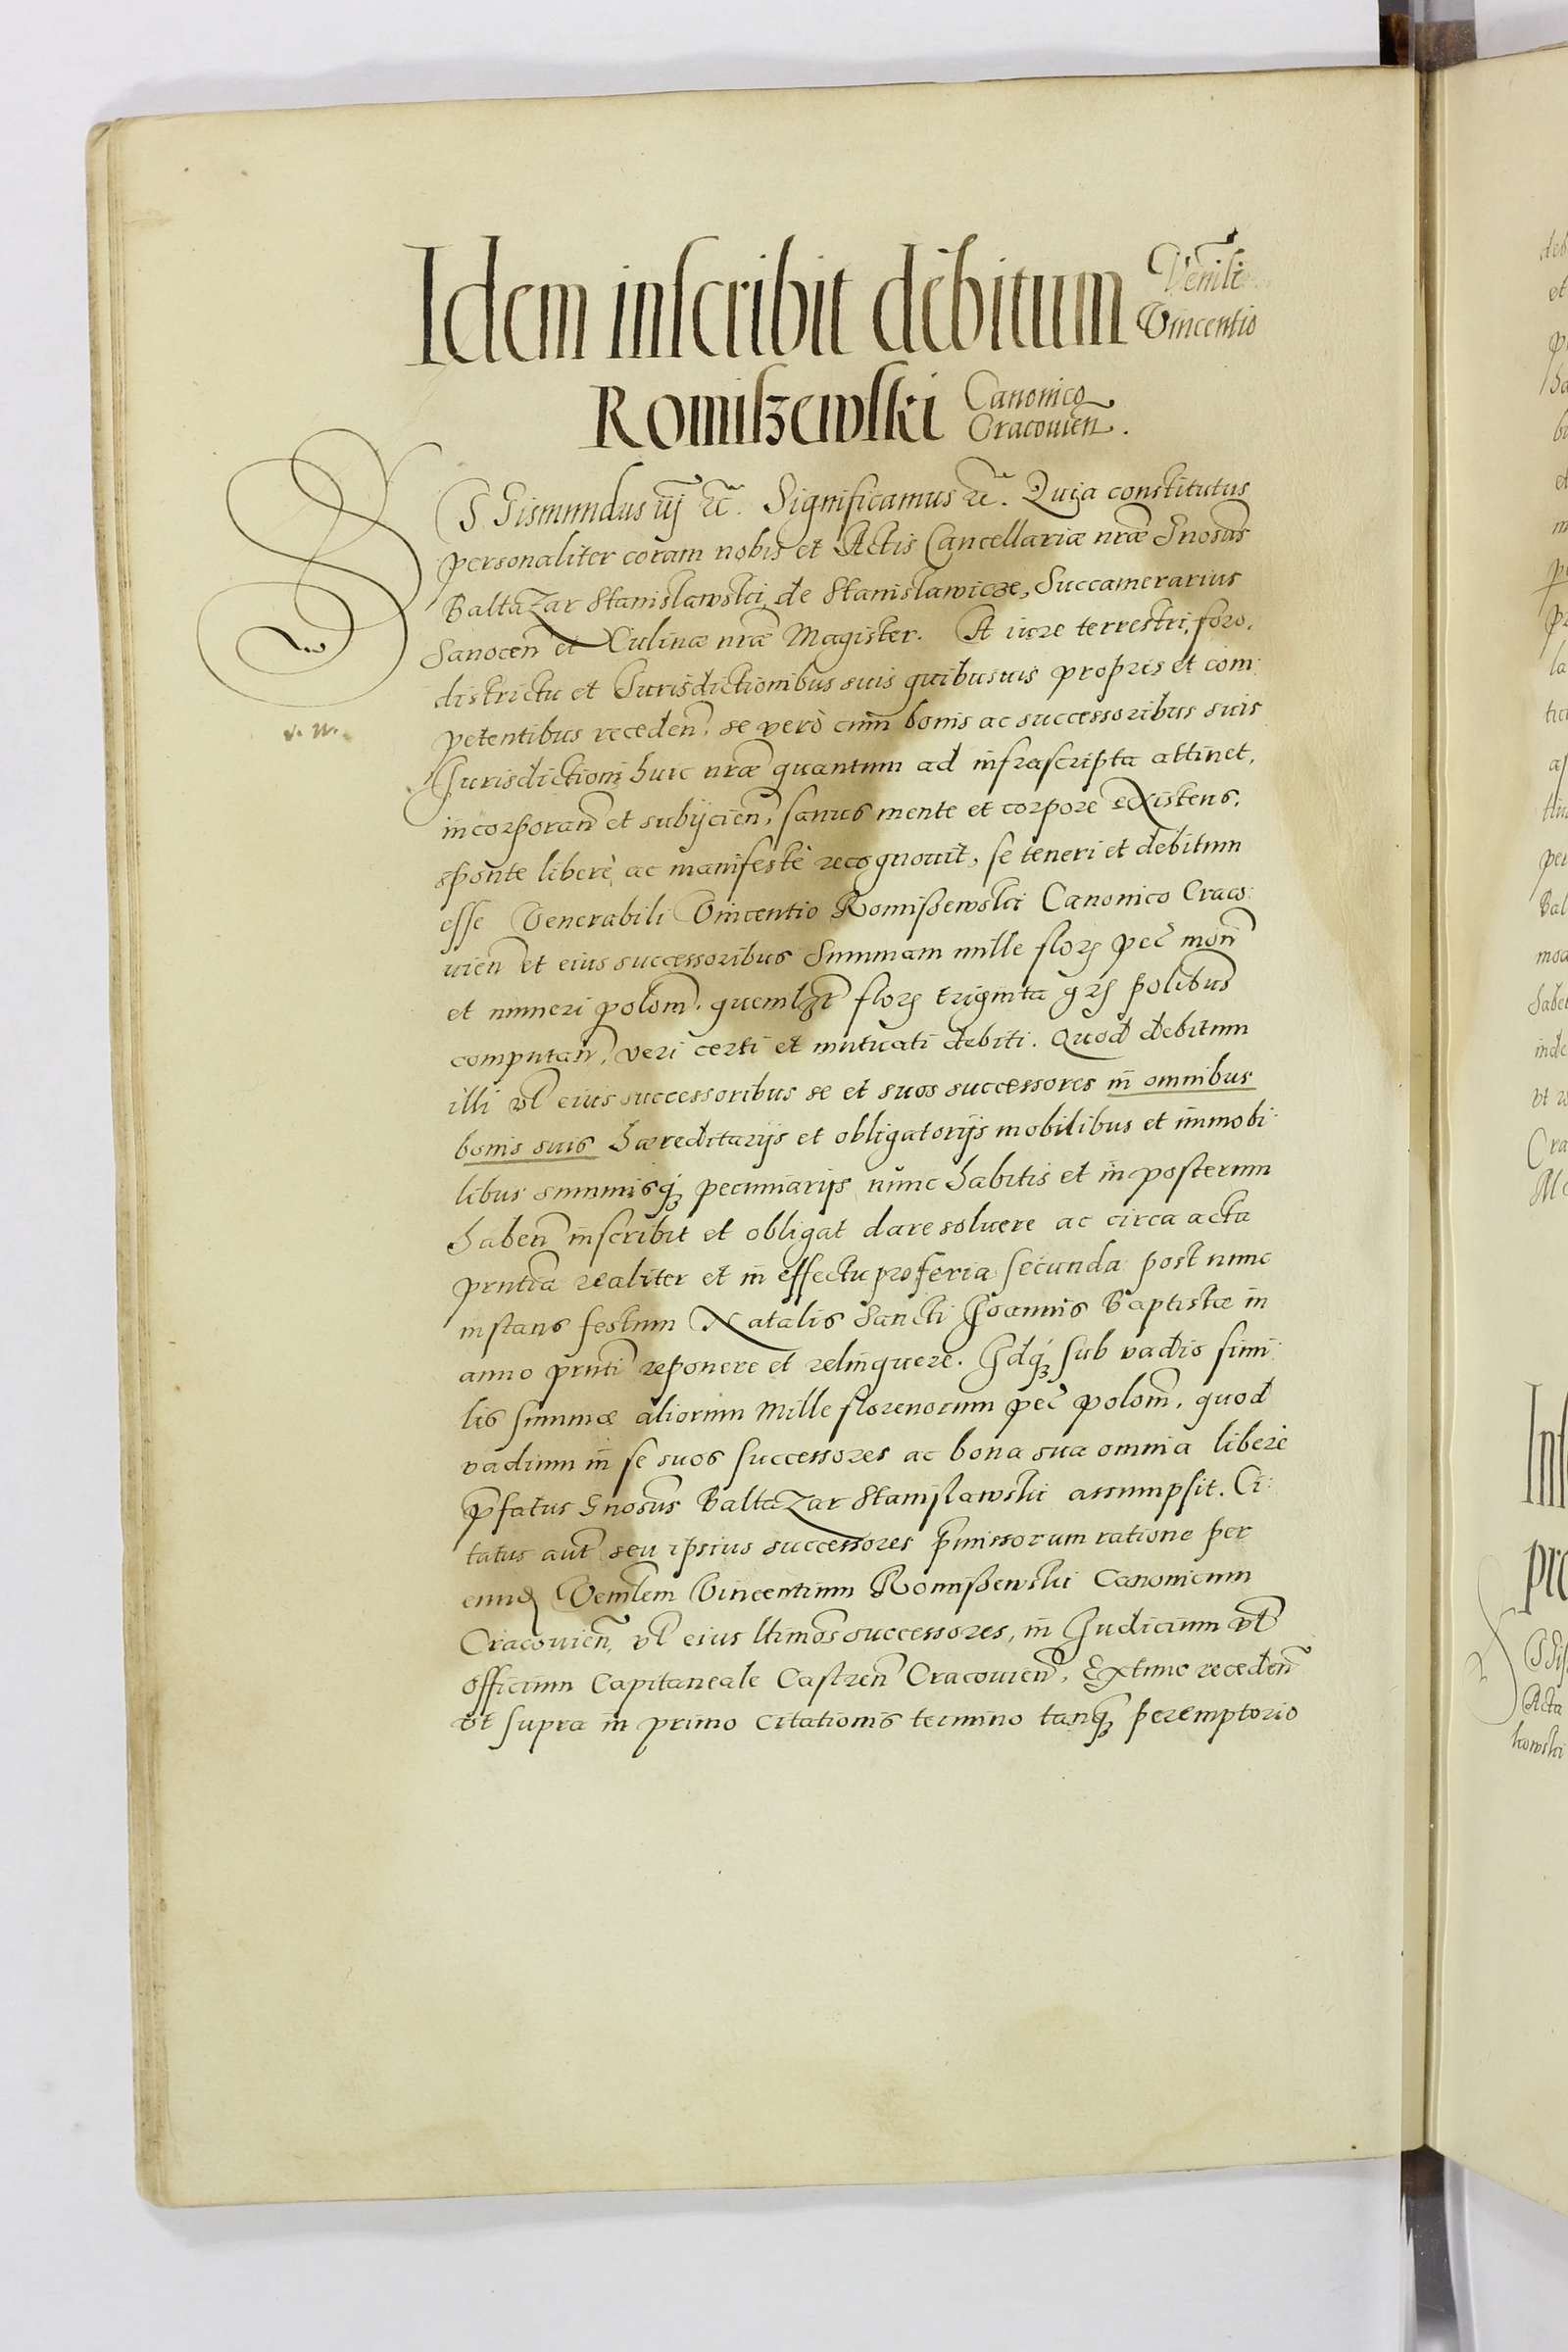 Idem inscribit debitum Venili
Vincentio
Romiszewski Canonico
Cracouien̄.
SIGismundus iij etc. Significamus etc. Quia constitutus
personaliter coram nobis et Actis Cancellariæ nræ Gnosus
Baltazar Stanislawski de Stanislawicze, Succamerarius
Sanocen̄ et Culinæ nræ Magister. A iure terrestri, foro,
districtu et Jurisdictionibus suis quibusuis proprijs et com:
petentibus receden̄, se verò cum bonis ac successoribus suis
v. n.
Jurisdictioni huic nræ quantum ad infrascripta attinet,
incorporan̄ et subijcien̄, sanus mente et corpore existens,
sponte liberè ac manifestè recognouit, se teneri et debitum
esse Venerabili Vincentio Romißewski Canonico Craco:
uien̄ et eius successoribus Summam mille flor̄ pec̄ mon̄
et numeri polon̄. quemlibet flor̄ triginta gr̄s polibus
computan̄, veri certi et mutuati debiti. Quod debitum
illi vl eius successoribus se et suos successores in omnibus
bonis suis hæreditarijs et obligatorijs mobilibus et immobi:
libus summisq; pecuniarijs nunc habitis et in posterum
haben̄ inscribit et obligat dare soluere ac circa acta
prntia realiter et in effectu pro feria secunda post nunc
instans festum Natalis Sancti Joannis Baptistæ in
anno prnti reponere et relinquere. Idq; sub vadio simi:
lis summæ aliorum Mille florenorum pec̄ polon̄, quod
vadium in se suos successores ac bona sua omnia liberè
p̄fatus Gnosus Baltazar Stanislawski assumpsit. Ci:
tatus aut seu ipsius successores p̄missorum ratione per
eund Venlem Vincentium Romißewski Canonicum
Cracouien̄, vl eius ltimos successores, in Judicium vl
officium Capitaneale Castren̄ Cracouien̄, Extunc receden̄
vt supra in primo citationis termino tanq; peremptorio